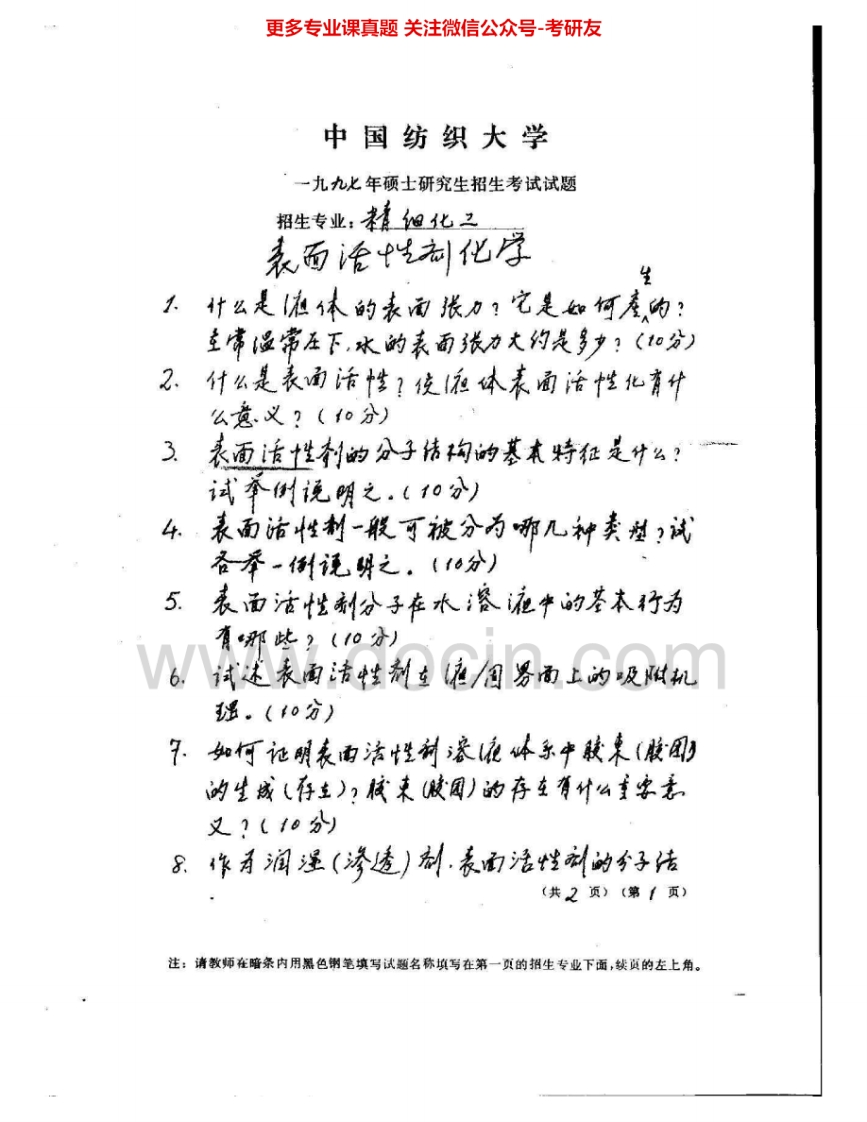 更多专业课真题 关注微信公众号-考研友
中国纺织大学
一九九七年硕士研究生招生考试试题
招生专业：精细化工
表面活性剂化学
1. 什么是液体的表面张力？它是如何产生的？
在常温常压下，水的表面张力大约是多少？（10分）
2. 什么是表面活性？使液体表面活性化有什
么意义？（10分）
3. 表面活性剂的分子结构的基本特征是什么？
试举例说明之。（10分）
4. 表面活性剂一般可被分为哪几种类型？试
各举一例说明之。（10分）
5. 表面活性剂分子在水溶液中的基本行为
有哪些？（10分）
www.docin.com
6. 试述表面活性剂在液/固界面上的吸附机
理。（10分）
7. 如何证明表面活性剂溶液体系中胶束（胶团）
的生成（存在）？胶束（胶团）的存在有什么重要意
义？（10分）
8. 作为润湿（渗透）剂．表面活性剂的分子结
（共2页）（第1页）
注：请教师在暗条内用黑色钢笔填写试题名称填写在第一页的招生专业下面，续页的左上角。